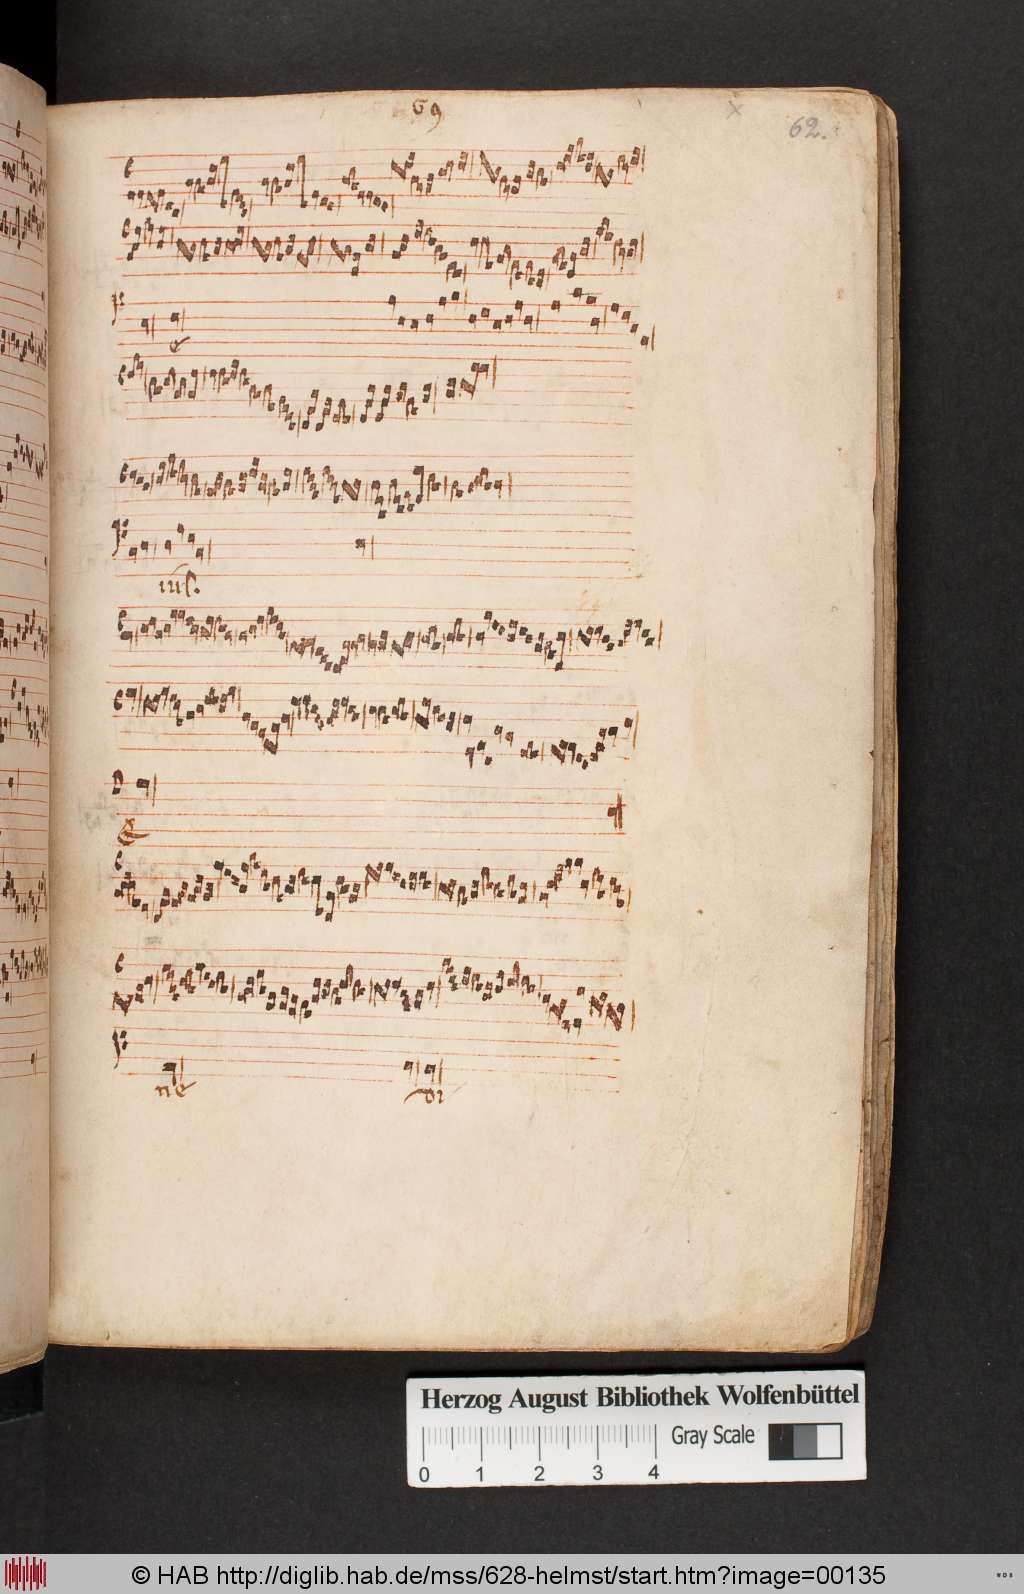 69
62.
&
iuS.
&
ne di
Herzog August Bibliothek Wolfenbüttel
Gray Scale
0 1 2 3 4
© HAB http://diglib.hab.de/mss/628-helmst/start.htm?image=00135